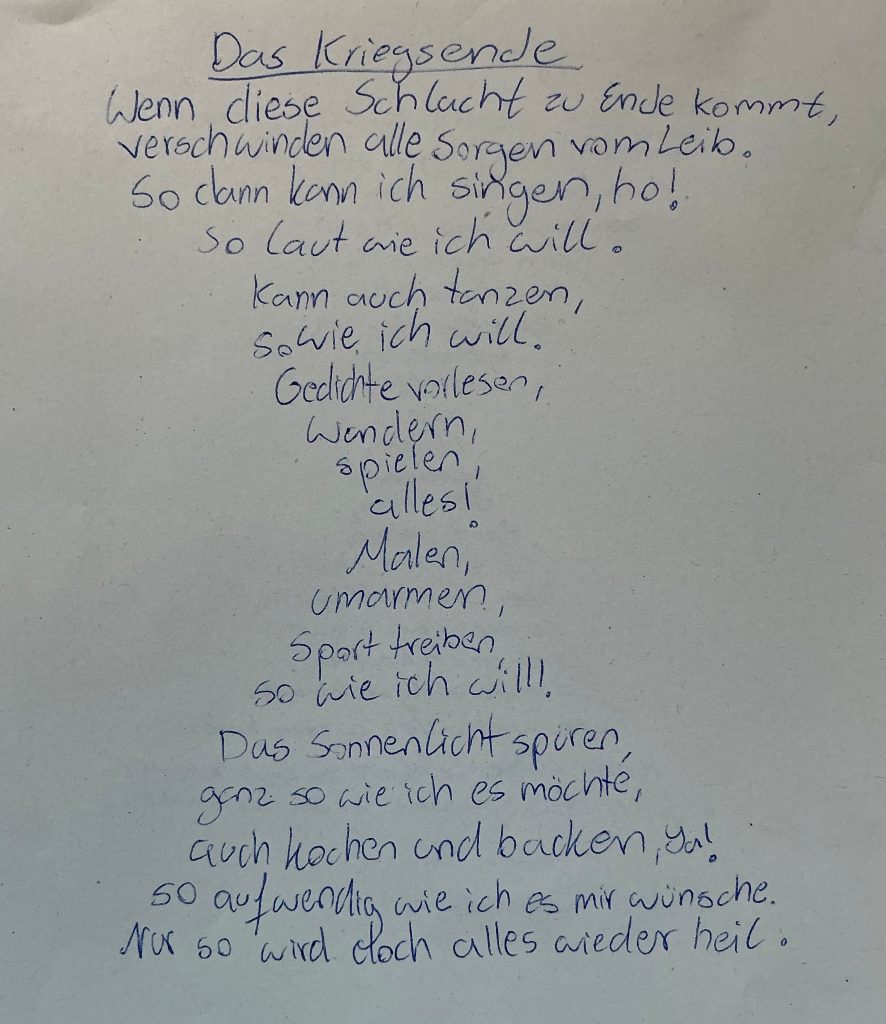 Das Kriegsende
Wenn diese Schlacht zu Ende kommt,
verschwinden alle Sorgen vom Leib.
So dann kann ich singen, ho!
So laut wie ich will.
Kann auch tanzen,
sowie ich will.
Gedichte vorlesen,
Wandern,
spielen,
alles!
Malen,
umarmen,
Sport treiben,
so wie ich will!
Das Sonnenlicht spüren,
ganz so wie ich es möchte,
auch kochen und backen, ya!
so aufwendig wie ich es mir wünsche.
Nur so wird doch alles wieder heil.